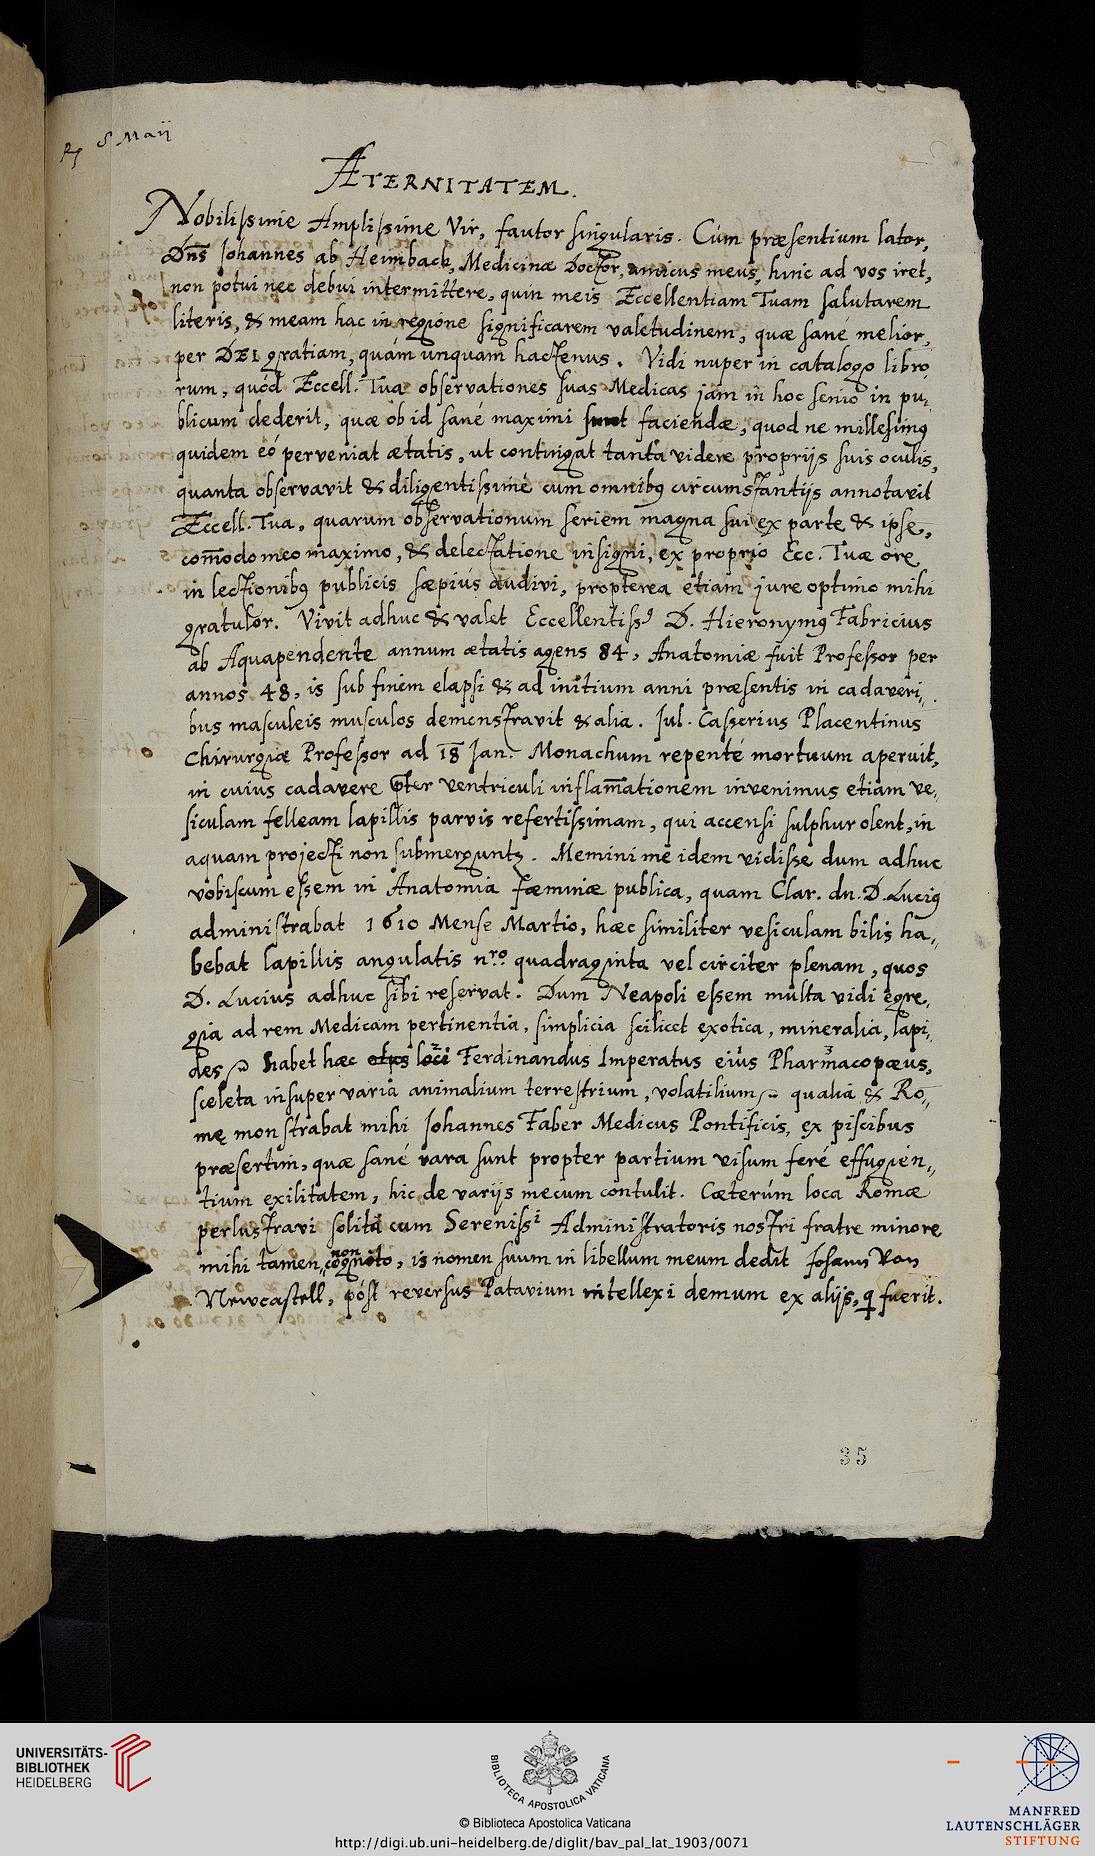 R 8 Maij
ÆTERNITATEM.
Nobilissime Amplissime Vir, fautor singularis. Cùm præsentium lator,
Dn̄s Johannes ab Heimbach, Medicinæ Doctor, amicus meus, hinc ad vos iret,
non potui nec debui intermittere, quin meis Excellentiam Tuam salutarem
literis, & meam hac in regione significarem valetudinem, quæ sanè melior,
per DEI gratiam, quàm unquam hactenus. Vidi nuper in catalogo libro,
rum, quòd Excell. Tua observationes suas Medicas jam in hoc senio in pu,
blicum dederit, quæ ob id sanè maximi sunt faciendæ, quod ne millesimꝰ
quidem eó perveniat ætatis, ut contingat tanta videre proprijs suis oculis,
quanta observavit & diligentissimè cum omnibꝰ circumstantijs annotavit
Excell. Tua, quarum observationum seriem magna sui ex parte & ipse,
com̄odo meo maximo, & delectatione insigni, ex proprio Ecc. Tuæ ore
in lectionibꝰ publicis sæpiús audivi, propterea etiam jure optimo mihi
gratulor. Vivit adhuc & valet Excellentiss. D. Hieronymꝰ Fabricius
ab Aquapendente annum ætatis agens 84, Anatomiæ fuit Professor per
annos 48, is sub finem elapsi & ad initium anni præsentis in cadaveri,,
bus masculeis musculos demonstravit & alia. Jul. Casserius Placentinus
Chirurgiæ Professor ad 18 Jan. Monachum repentè mortuum aperuit,
in cuius cadavere pter ventriculi inflam̄ationem invenimus etiam ve,
siculam felleam lapillis parvis refertissimam, qui accensi sulphur olent, in
aquam projecti non submerguntꝛ. Memini me idem vidisse dum adhuc
vobiscum essem in Anatomia fœminæ publica, quam Clar. dn. D. Luciꝰ
administrabat 1610 Mense Martio, hæc similiter vesiculam bilis ha,,
bebat lapillis angulatis nro. quadraginta vel circiter plenam, quos
D. Lucius adhuc sibi reservat. Dum Neapoli essem multa vidi egre,
gia ad rem Medicam pertinentia, simplicia scilicet exotica, mineralia, lapi,
des habet hæc loci Ferdinandus Imperatus eiús Pharmacopæus,
sceleta insuper varia animalium terrestrium, volatilium qualia & Ro,,
mę monstrabat mihi Johannes Faber Medicus Pontificis, ex piscibus
præsertim, quæ sanè rara sunt propter partium visum ferè effugien,,
tium exilitatem, hic de varijs mecum contulit. Cæterùm loca Romæ
perlustravi solita cum Serenissi Administratoris nostri fratre minore
mihi tamen non cognito, is nomen suum in libellum meum dedit Johann Von
Newcastell, póst reversus Patavium intellexi demum ex alijs, q fuerit.
35
UNIVERSITÄTS-
BIBLIOTHEK
HEIDELBERG
BIBLIOTECA APOSTOLICA VATICANA
© Biblioteca Apostolica Vaticana
http://digi.ub.uni-heidelberg.de/diglit/bav_pal_lat_1903/0071
MANFRED
LAUTENSCHLÄGER
STIFTUNG